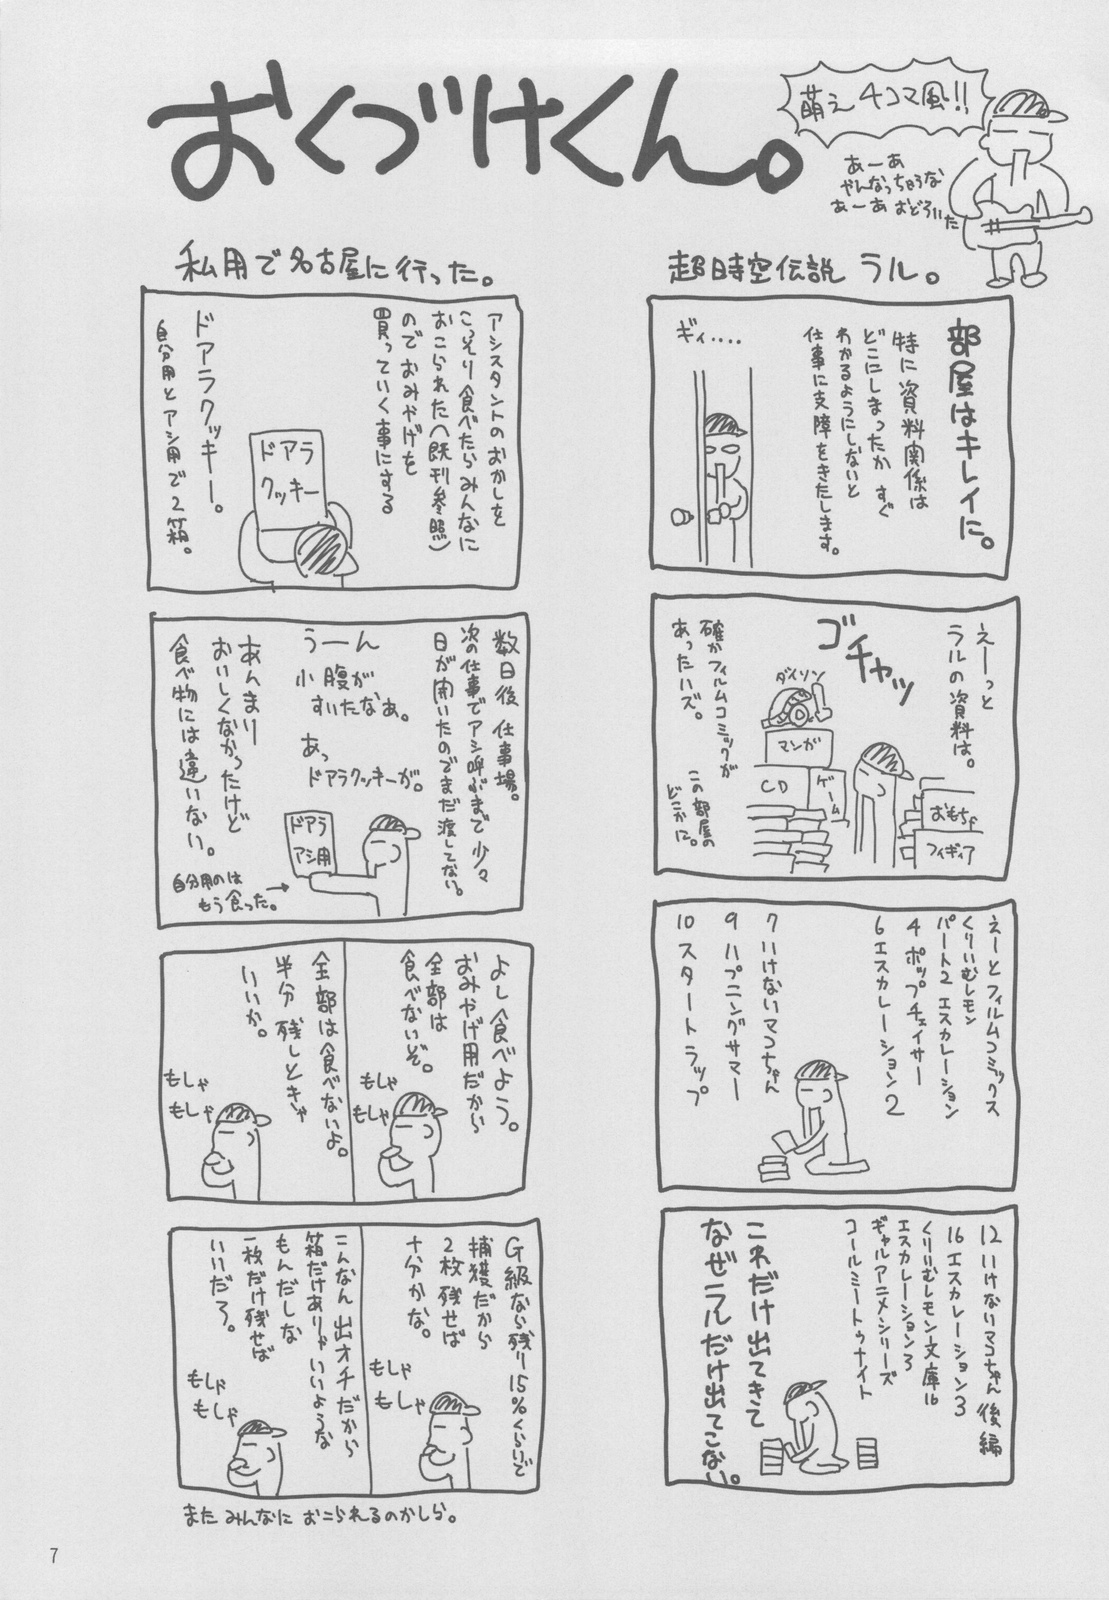 おくづけくん。
萌え4コマ風!!
あーあ
やんなっちゃうな
あーあ おどろいた
超時空伝説 ラル。
部屋はキレイに。
特に資料関係は
どこにしまったか すぐ
わかるようにしないと
仕事に支障をきたします。
ギィ‥‥
えーっと
ラルの資料は。
ゴチャッ
ダイソン
マンガ
CD
ゲーム
おもちゃ
フィギィア
確かフィルムコミックが
あったハズ。
この部屋の
どこかに。
えーとフィルムコミックス
くりいむレモン
パート2 エスカレーション
4 ポップチェイサー
6 エスカレーション2
7 いけないマコちゃん
9 ハプニングサマー
10 スタートラップ
12 いけないマコちゃん 後編
16 エスカレーション3
くりいむレモン文庫16
エスカレーション3
ギャルアニメシリーズ
コールミートゥナイト
これだけ出てきて
なぜラルだけ出てこない。
私用で名古屋に行った。
アシスタントのおかしを
こっそり食べたらみんなに
おこられた(既刊参照)
ので おみやげを
買っていく事にする
ドアラ
クッキー
ドアラクッキー。
自分用とアシ用で2箱。
数日後 仕事場。
次の仕事でアシ呼ぶまで少々
日が開いたのでまだ渡してない。
うーん
小腹が
すいたなあ。
あっ
ドアラクッキーが。
ドアラ
アシ用
あんまり
おいしくなかったけど
食べ物には違いない。
自分用のは
もう食った。
よし食べよう。
おみやげ用だから
全部は
食べないぞ。
もしゃ
もしゃ
全部は食べないよ。
半分 残しときゃ
いいか。
もしゃ
もしゃ
G級なら残り15%くらいで
捕獲だから
2枚残せば
十分かな。
もしゃ
もしゃ
こんなん 出オチだから
箱だけありゃいいような
もんだしな
一枚だけ残せば
いいだろ。
もしゃ
もしゃ
また みんなに おこられるのかしら。
7